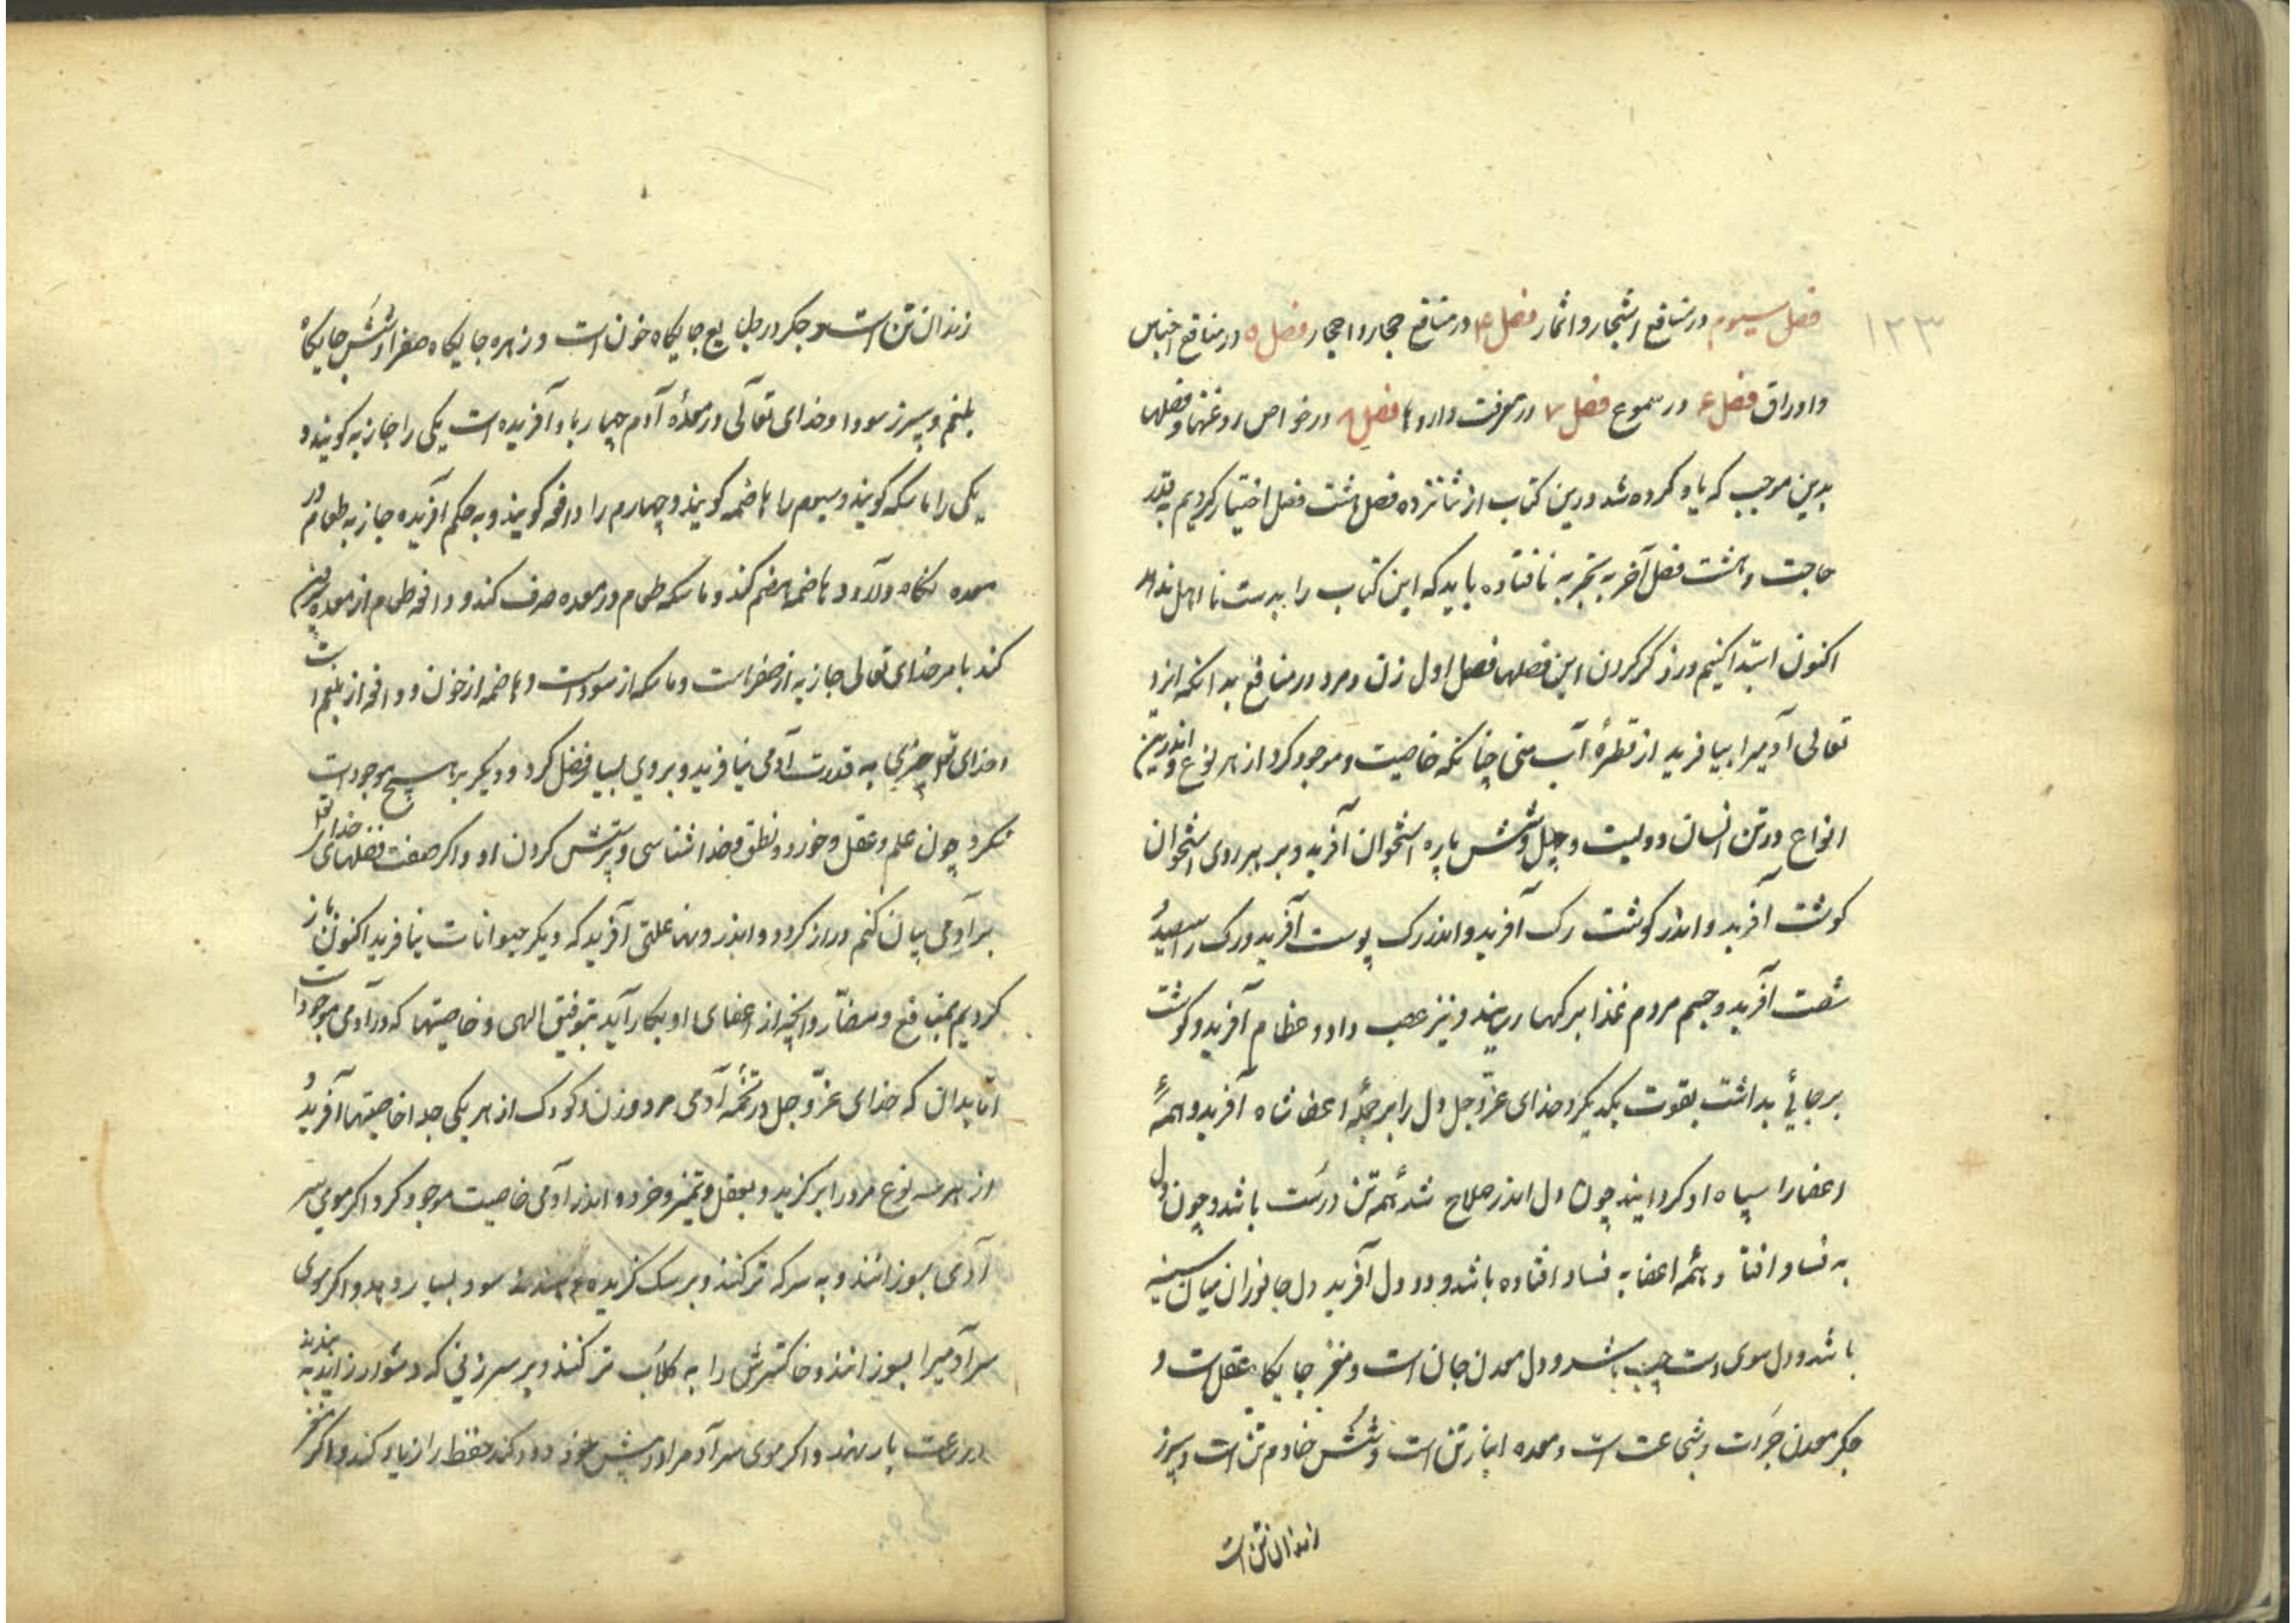 ۱۲۳
فصل سیوم در منافع اشجار و اثمار فصل ۴ در منافع حجار و احجار فصل ۵ در منافع اجناس
و اوراق فصل ۶ در سموع فصل ۷ در معرفت داروها فصل ۸ در خواص روغنها و فصلها
بدین موجب که یاد کرده شد درین کتاب از شانزده فصل هشت فصل اختیار کردیم بقدر
حاجت و هشت فصل آخر به تجربه نافتاده باید که این کتاب را بدست نا اهل ندهد
اکنون ابتدا کنیم در ذکر کردن این فصلها فصل اول زن و مرد در منافع بدانکه ایزد
تعالی آدمیرا بیافرید از قطرهٔ آب منی چنانکه خاصیت و موجود کرد از هر نوع و اندرین
انواع در تن انسان دولیت و چهل و شش پاره استخوان آفرید و بر هر روی استخوان
کوشت آفرید و اندر کوشت رک آفرید و اندر رک پوست آفرید و رک را سیصد و
شصت آفرید و جسم مردم غذا برکها رسانید و نیز عصب داد و عظام آفرید و کوشت
بر جائی بداشت بقوت یکدیکر و خدای عزّ و جل دل را بر جملهٔ اعضا شاه آفرید و همهٔ
اعضا را سپاه او کردانید چون دل اندر صلاح شد همه تن درست باشد و چون دل
به فساد افتاد همه اعضا به فساد افتاده باشد و دو دل آفرید دل جانوران میان سینه
باشد و دل سوی دست چپ باشد و دل معدن جان است و مغز جایکاه عقل است و
جکر معدن جرات و شجاعت است و معده انبار تن است و شش خادم تن است و سپرز
زندان تن است
زندان تن است و جکر در طبایع جایکاه خون است و زهره جایکاه صفرا و شش جایکاه
بلغم و سپرز سودا و خدای تعالی در معدهٔ آدم چهار باد آفریده است یکی را جازبه کویند و
یکی را ماسکه کویند و سیوم را هاضمه کویند و چهارم را دافعه کویند و به حکم آفریده جازبه طعام در
معده نکاه دارد و هاضمه هضم کند و ماسکه طعام در معده صرف کند و دافعه طعام از معده بیرون
کند بامر خدای تعالی جازبه از صفراست و ماسکه از سوداست و هاضمه از خون و دافعه از بلغم است
و خدای تعالی چیزی به قدرت آدمی نیافرید و بروی بسیار فضل کرد و دیکر بر هیچ موجودات
نکرد چون علم و عقل و خرد و نطق و خدا شناسی و پرستش کردن او و اکر صفت فضلهای خدای تعالی
بر آدمی بیان کنم دراز کردد و اندر وی علتی آفرید که دیکر حیوانات نیافرید اکنون باز
کردیم بمنافع و مضارّ و آنچه از اعضای او بکار آید بتوفیق الهی و خاصیتها که در آدمی موجود است
امّا بدان که خدای عزّ و جل در تخمهٔ آدمی مرد و زن و کودک از هر یکی جدا خاصیتها آفرید و
از هر سه نوع مرد را برکزید و بعقل و تمیز و خرد و اندر آدمی خاصیت موجود کرد اکر موی سر
آدمی بسوزانند و به سرکه تر کنند و بر سک کزیده نهند سود بسیار دهد و اکر موی
سر آدمیرا بسوزانند و خاکسترش را به کلاب تر کنند و بر سر زنی که دشوار زاید به بندند
در ساعت بار نهد و اکر موی سر آدم را در پیش خود دود کند حفظ را زیاد کند و اکر